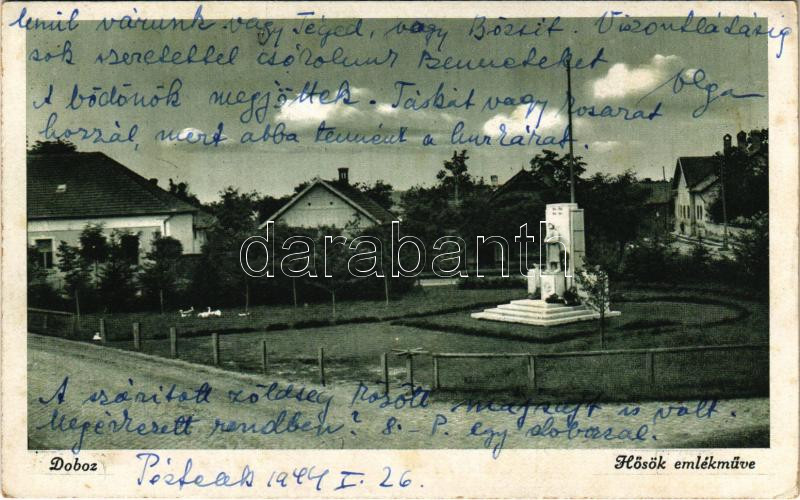 lenül várunk vagy Téged, vagy Bözsit. Viszontlátásig
sok szeretettel csókolunk Benneteket
Olga
A bödönök megjöttek. Táskát vagy kosarat
hozzál, mert abba tenném a huzárat.
darabanth
A szárított zöldség között magsajt is volt.
Megérkezett rendben? S.-P. egy dobozal.
Doboz
Péntek 1944 I. 26.
Hősök emlékműve